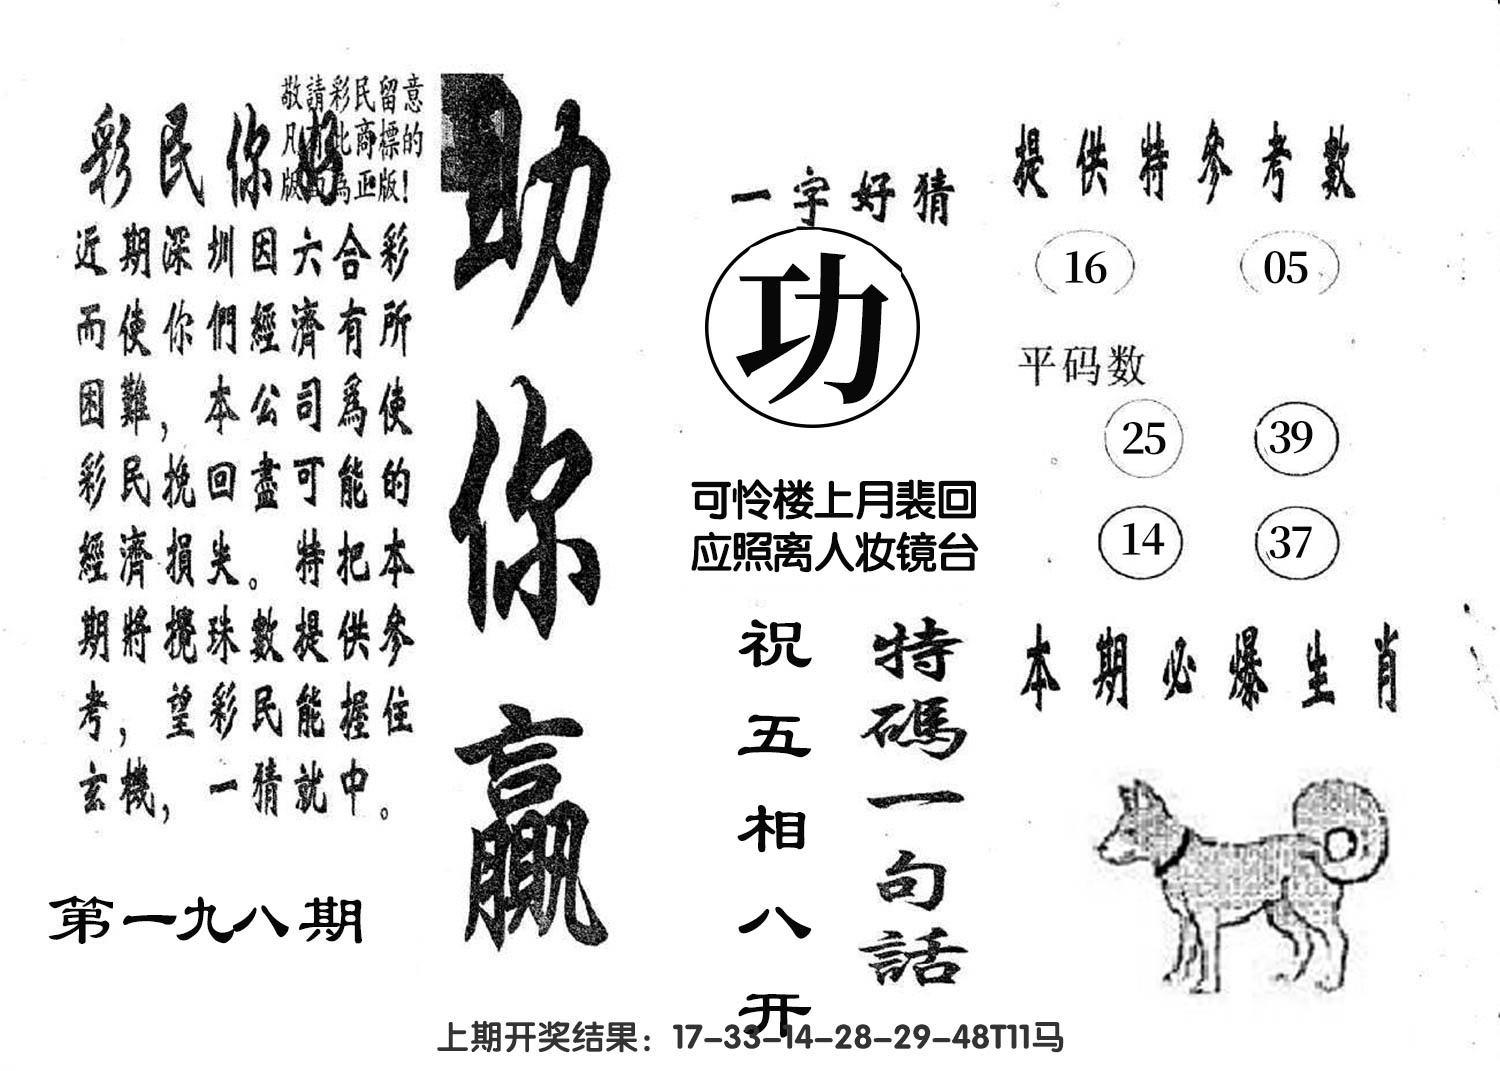 敬請彩民留意
凡有此商標的
版面為正版!
彩民你好
近期深圳因六合彩
而使你們經濟有所
困難，本公司爲使
彩民挽回盡可能的
經濟損失。特把本
期將攪珠數提供參
考，望彩民能握住
玄機，一猜就中。
第一九八期
助你贏
一字好猜
功
可怜楼上月裴回
应照离人妆镜台
特碼一句話
祝五相八开
提供特參考數
16 05
平码数
25 39
14 37
本期必爆生肖
上期开奖结果：17-33-14-28-29-48T11马